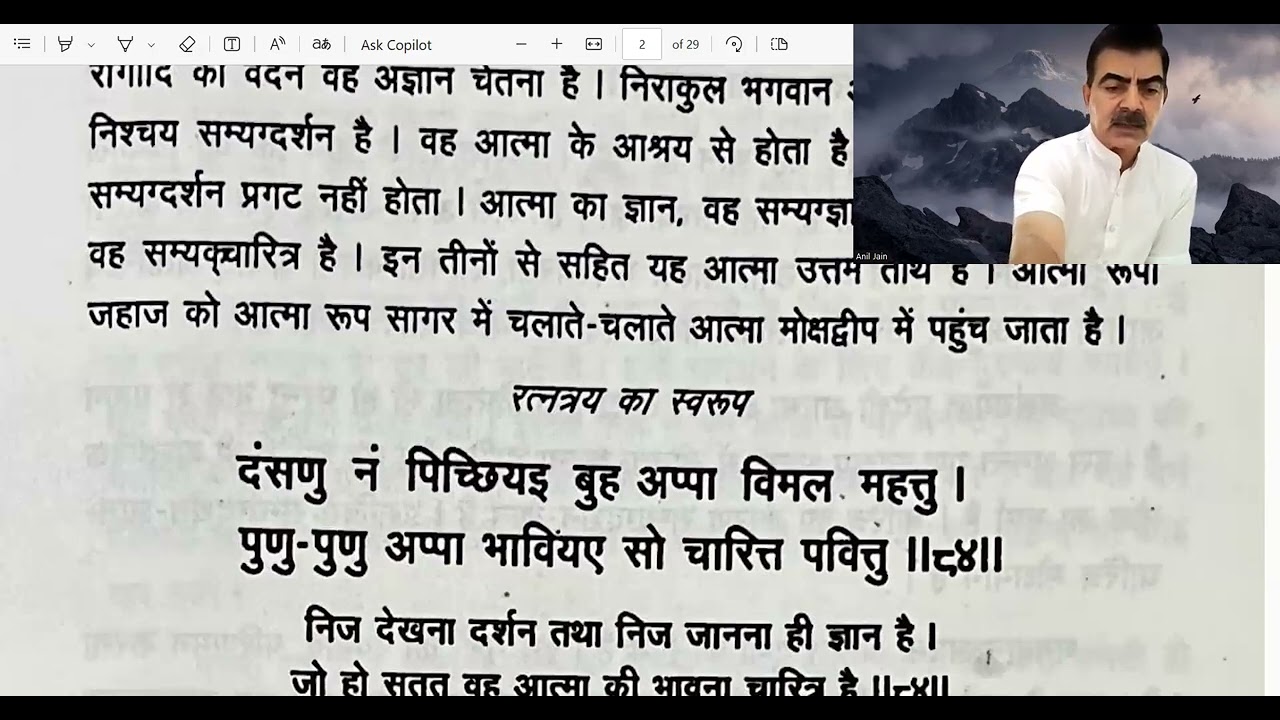 Ask Copilot
2
of 29
रागादि का वेदन वह अज्ञान चेतना है । निराकुल भगवान
निश्चय सम्यग्दर्शन है । वह आत्मा के आश्रय से होता है
सम्यग्दर्शन प्रगट नहीं होता । आत्मा का ज्ञान, वह
वह सम्यक्चारित्र है । इन तीनों से सहित यह आत्मा उत्तम तीर्थ है । आत्मा रूपी
जहाज को आत्मा रूप सागर में चलाते-चलाते आत्मा मोक्षद्वीप में पहुंच जाता है ।
रत्नत्रय का स्वरूप
दंसणु नं पिच्छियइ बुह अप्पा विमल महत्तु ।
पुणु-पुणु अप्पा भावियए सो चारित्त पवित्तु ॥८४॥
निज देखना दर्शन तथा निज जानना ही ज्ञान है ।
जो हो सतत वह आत्मा की भावना चारित्र है ॥८४॥
Anil Jain